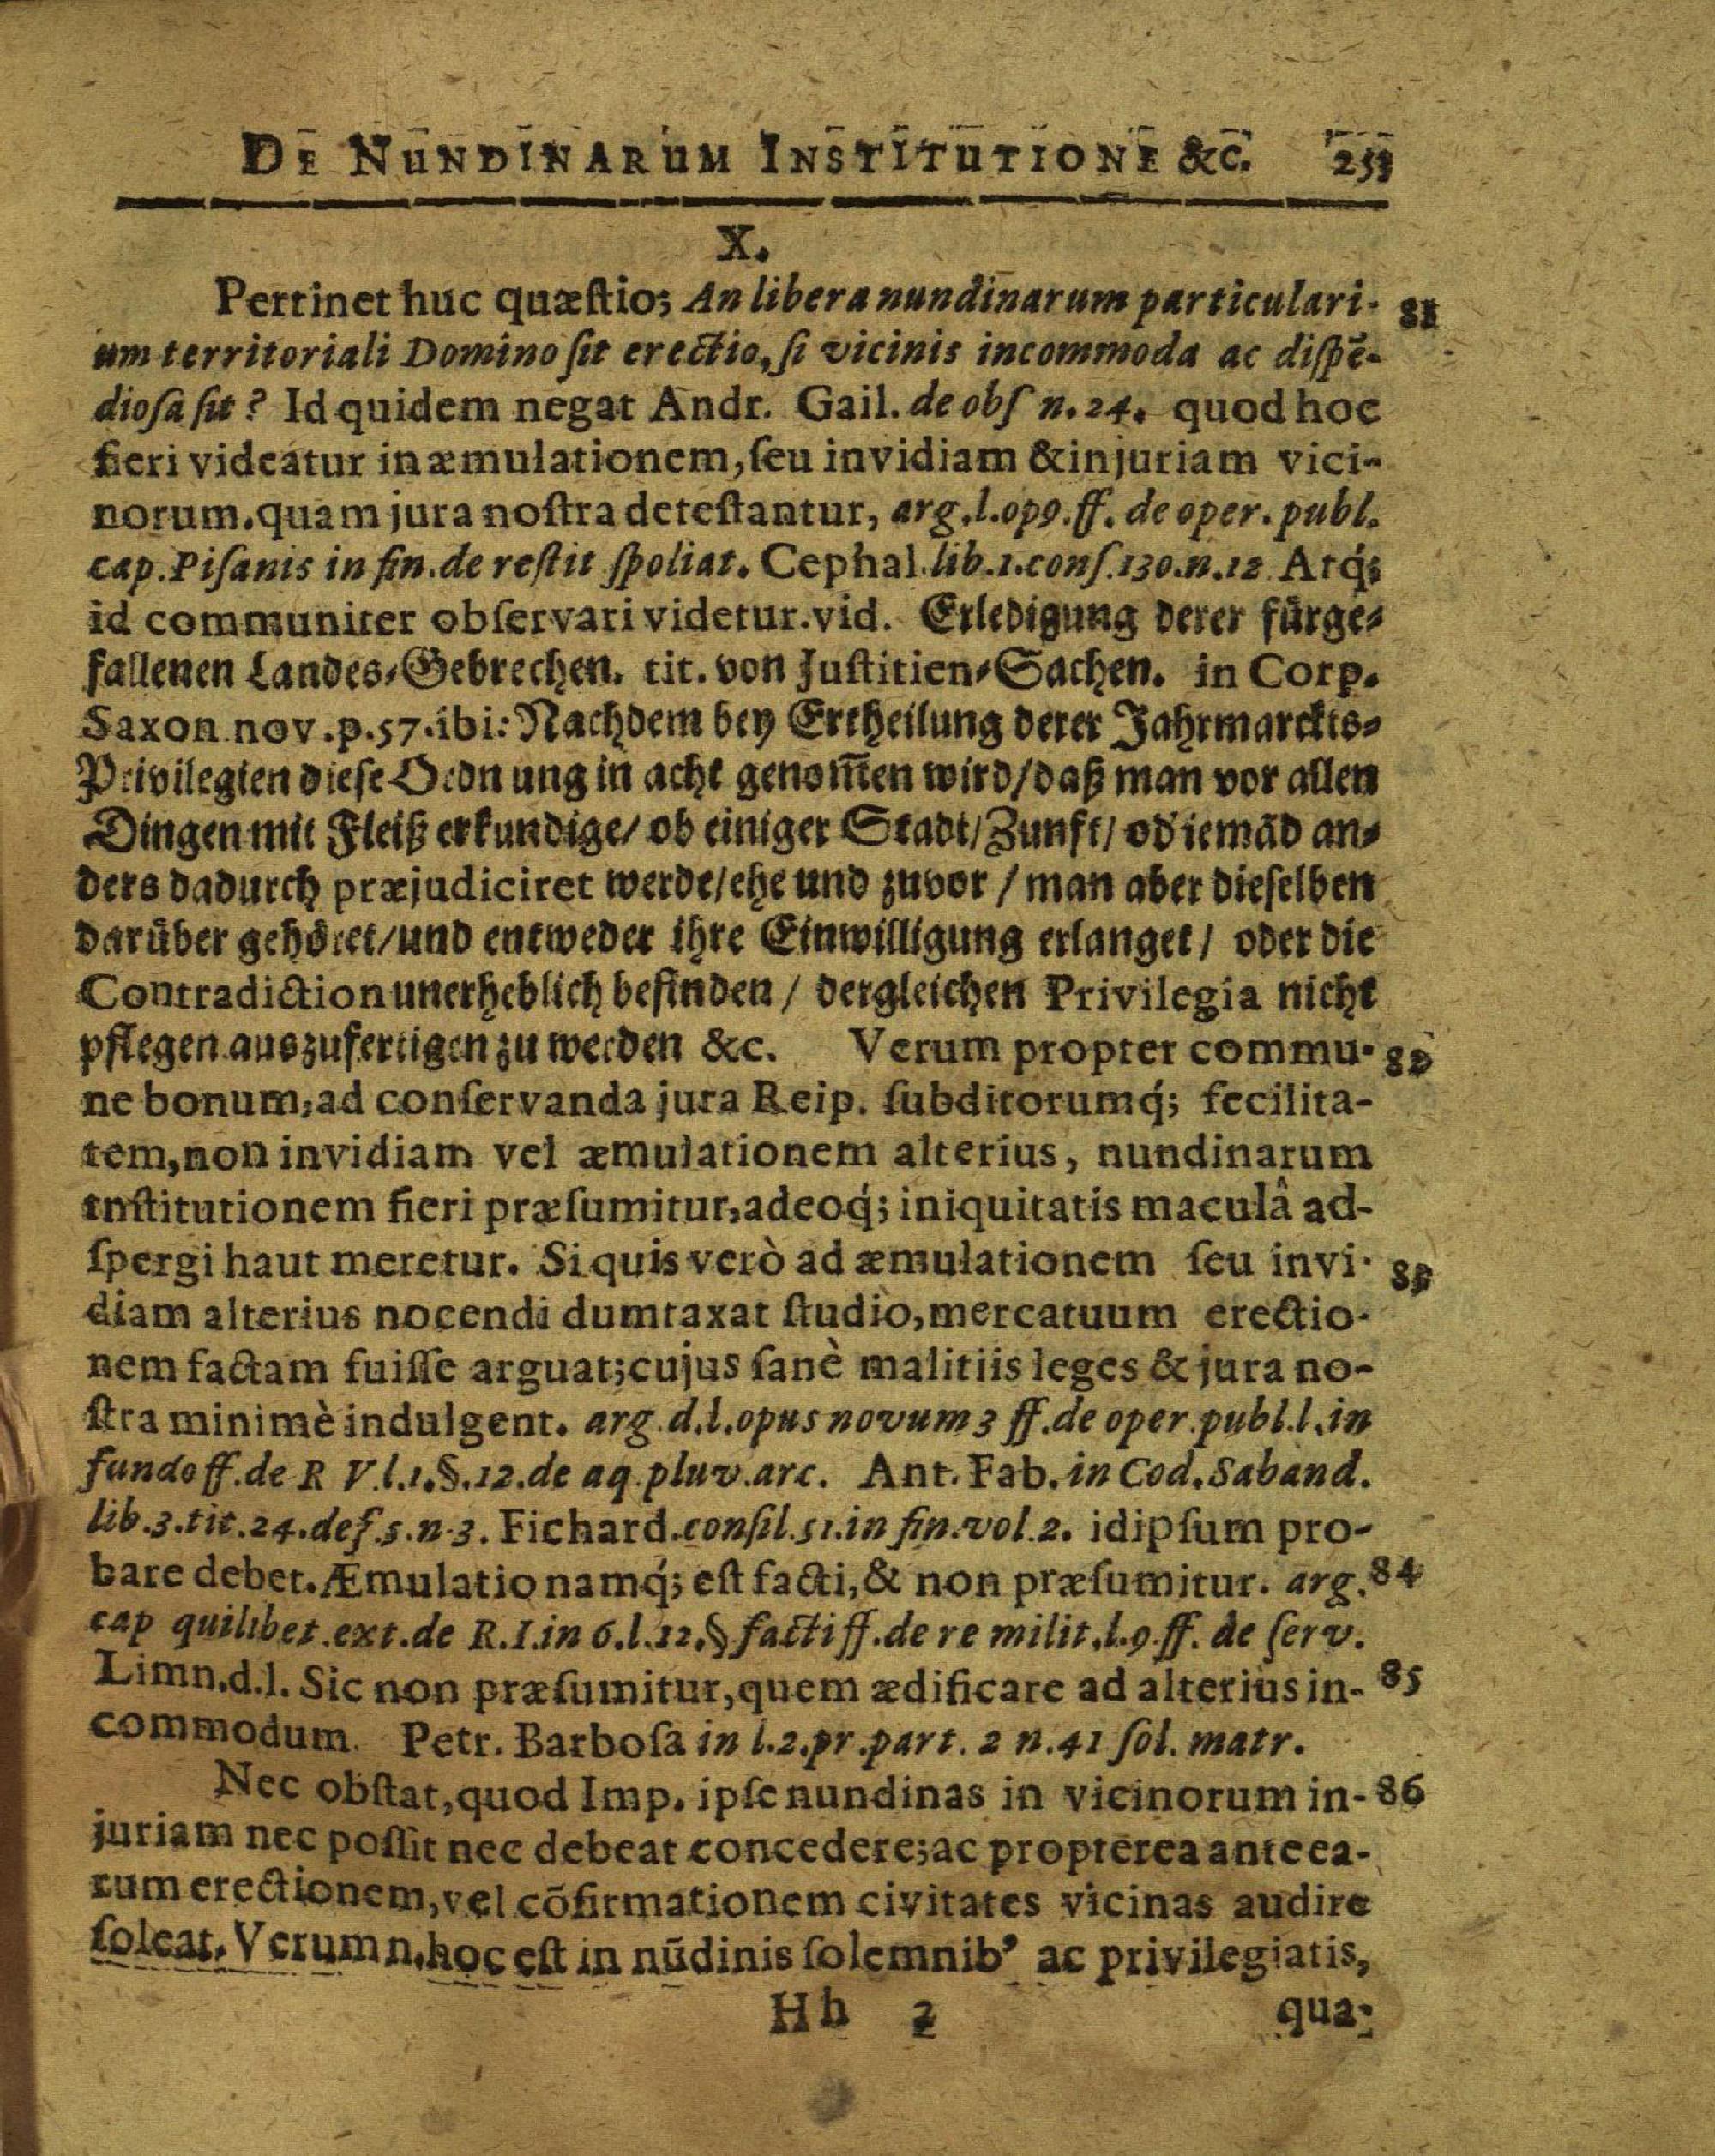 DE NUNDINARUM INSTITUTIONE &c. 251
X.
Pertinet huc quæſtio; An libera nundinarum particulari- 81
um territoriali Domino ſit erectio, ſi vicinis incommoda ac diſpē-
dioſa ſit? Id quidem negat Andr. Gail. de obſ n. 24. quod hoc
fieri videatur in æmulationem, ſeu invidiam & injuriam vici-
norum. quam jura noſtra deteſtantur, arg. l. op9. ff. de oper. publ.
cap. Piſanis in fin. de reſtit ſpoliat. Cephal. lib. 1. conſ. 130. n. 12 Atq́;
id communiter obſervari videtur. vid. Erledigung derer fürge-
fallenen Landes-Gebrechen. tit. von Juſtitien-Sachen. in Corp.
Saxon. nov. p. 57. ibi: Nachdem bey Ertheilung derer Jahrmarckts-
Privilegien dieſe Ordnung in acht genom̃en wird/ daß man vor allen
Dingen mit Fleiß erkundige/ ob einiger Stadt/ Zunft/ od' iemād an-
ders dadurch præjudiciret werde/ ehe und zuvor / man aber dieſelben
darüber gehöret/ und entweder ihre Einwilligung erlanget/ oder die
Contradiction unerheblich befinden / dergleichen Privilegia nicht
pflegen auszufertigen zu werden &c. Verum propter commu- 82
ne bonum, ad conſervanda jura Reip. ſubditorumq́; fecilita-
tem, non invidiam vel æmulationem alterius, nundinarum
inſtitutionem fieri præſumitur, adeoq́; iniquitatis maculâ ad-
ſpergi haut meretur. Si quis verò ad æmulationem ſeu invi- 83
diam alterius nocendi dumtaxat ſtudio, mercatuum erectio-
nem factam fuiſſe arguat; cujus ſanè malitiis leges & jura no-
ſtra minimè indulgent. arg. d. l. opus novum 3 ff. de oper. publ. l. in
fundo ff. de R V. l. 1. §. 12. de aq. pluv. arc. Ant. Fab. in Cod. Saband.
lib. 3. tit. 24. def. 5. n. 3. Fichard. conſil. 51. in fin. vol. 2. idipſum pro-
bare debet. Æmulatio namq́; eſt facti, & non præſumitur. arg. 84
cap quilibet. ext. de R. I. in 6. l. 12. § facti ff. de re milit. l. 9. ff. de ſerv.
Limn. d. l. Sic non præſumitur, quem ædificare ad alterius in- 85
commodum. Petr. Barboſa in l. 2. pr. part. 2 n. 41 ſol. matr.
Nec obſtat, quod Imp. ipſe nundinas in vicinorum in- 86
juriam nec poſſit nec debeat concedere; ac propterea ante ea-
rum erectionem, vel cõfirmationem civitates vicinas audire
ſoleat. Verum n. hoc eſt in nũdinis ſolemnib' ac privilegiatis,
Hh 2 qua-